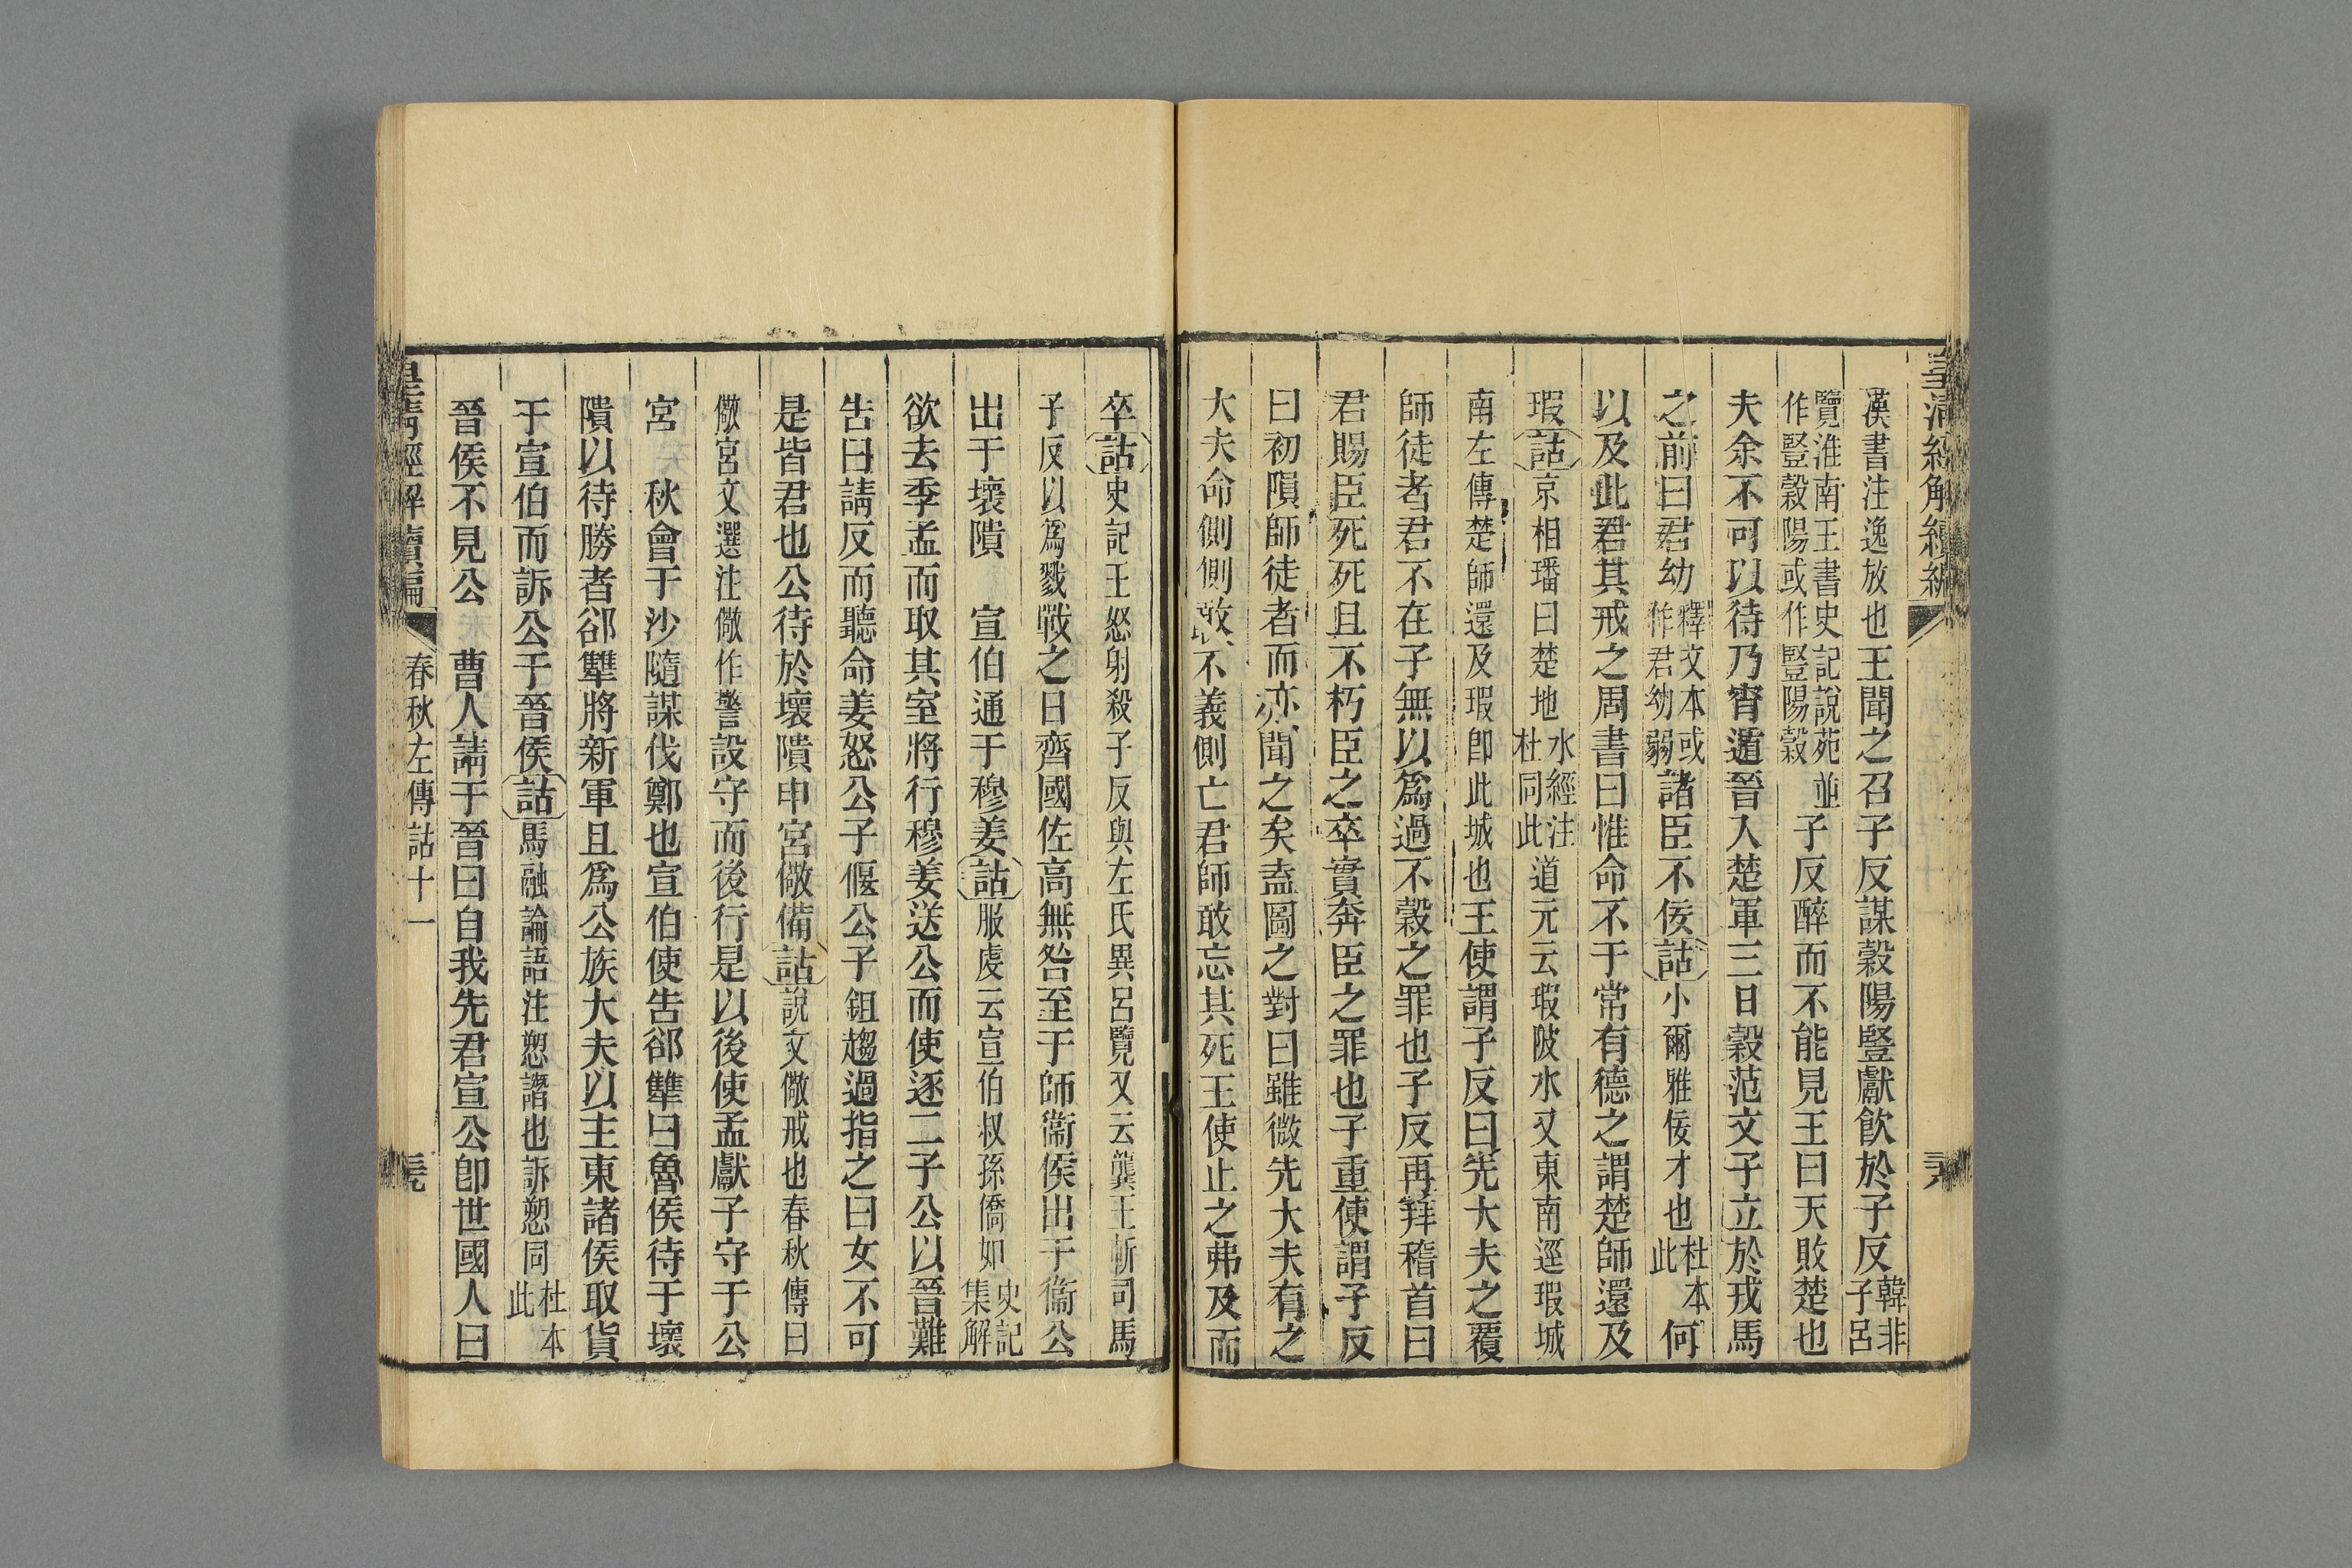 漢書注逸放也王聞之召子反謀穀陽豎獻飲於子反韓非子呂
覽淮南王書史記說苑並作豎穀陽或作豎陽穀子反醉而不能見王曰天敗楚也
夫余不可以待乃宵遁晉入楚軍三日穀范文子立於戎馬
之前曰君幼釋文本或作君幼弱諸臣不佞詁小爾雅佞才也杜本此何
以及此君其戒之周書曰惟命不于常有德之謂楚師還及
瑕詁京相璠曰楚地水經注杜同此道元云瑕陂水又東南逕瑕城
南左傳楚師還及瑕卽此城也王使謂子反曰先大夫之覆
師徒者君不在子無以爲過不穀之罪也子反再拜稽首曰
君賜臣死死且不朽臣之卒實奔臣之罪也子重使謂子反
曰初隕師徒者而亦聞之矣盍圖之對曰雖微先大夫有之
大夫命側側敢不義側亡君師敢忘其死王使止之弗及而
皇清經解續編 春秋左傳詁十一
卒詁史記王怒射殺子反與左氏異呂覽又云龔王斬司馬
子反以爲戮戰之日齊國佐高無咎至于師衞侯出于衞公
出于壞隤 宣伯通于穆姜詁服虔云宣伯叔孫僑如史記集解
欲去季孟而取其室將行穆姜送公而使逐二子公以晉難
告曰請反而聽命姜怒公子偃公子鉏趨過指之曰女不可
是皆君也公待於壞隤申宮儆備詁說文儆戒也春秋傳曰
儆宮文選注儆作警設守而後行是以後使孟獻子守于公
宮 秋會于沙隨謀伐鄭也宣伯使告郤犨曰魯侯待于壞
隤以待勝者郤犨將新軍且爲公族大夫以主東諸侯取貨
于宣伯而訴公于晉侯詁馬融論語注愬譖也訴愬同杜本此
晉侯不見公 曹人請于晉曰自我先君宣公卽世國人曰